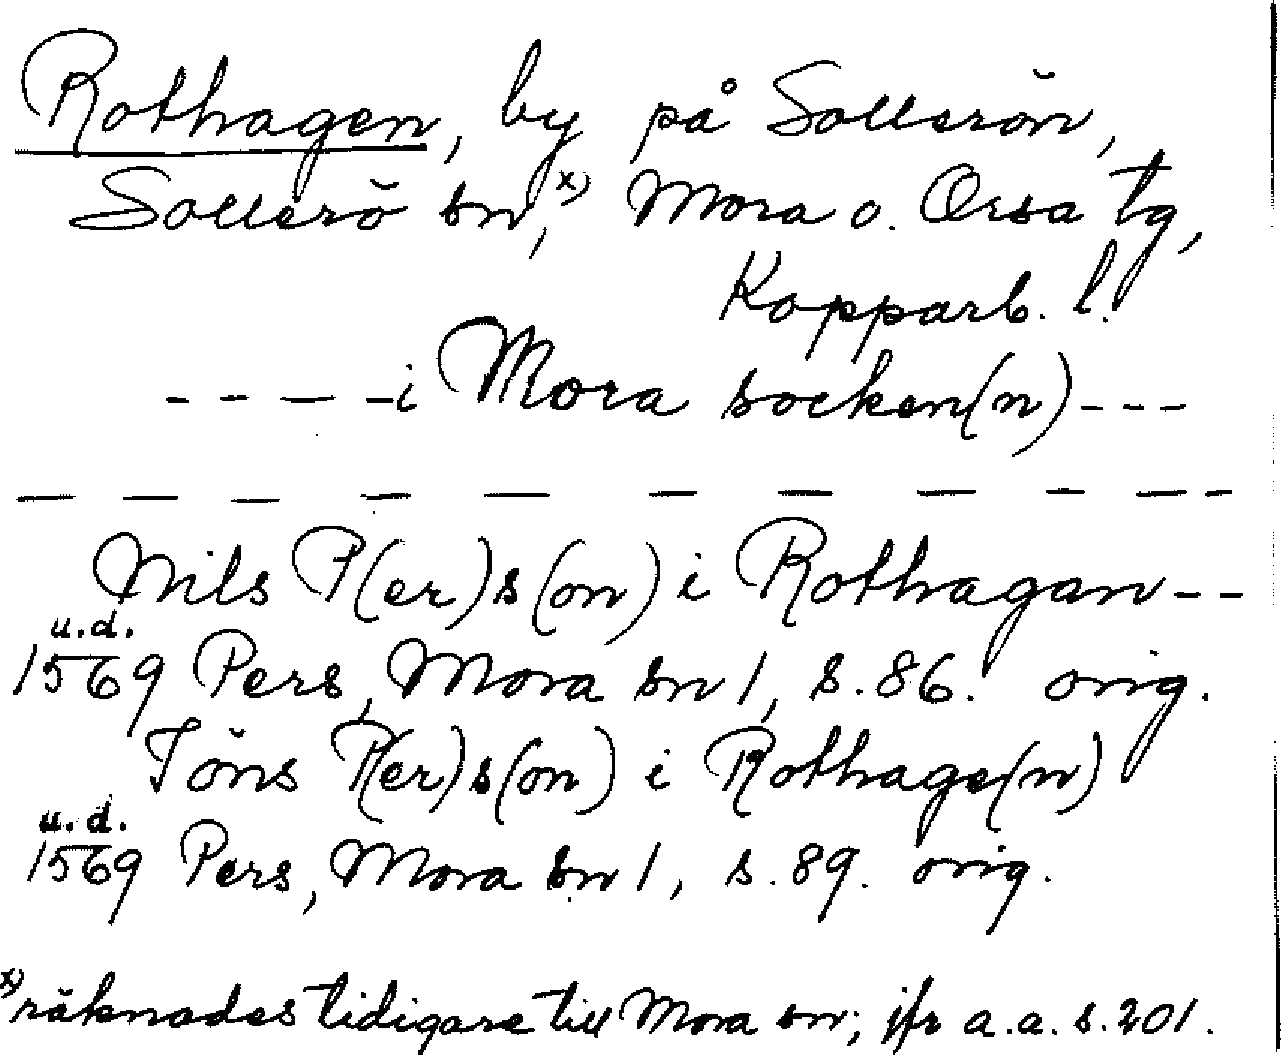 Rothagen, by på Sollerön,
Sollerö sn,x) Mora o. Orsa tg,
Kopparb. l.
- - - - i Mora socken(n) - - -
- - - - - - - - - - -
Nils P(er)s(on) i Rothagan - -
u.d.
1569 Pers, Mora sn 1, s. 86. orig.
Jöns P(er)s(on) i Rothage(n)
u.d.
1569 Pers, Mora sn 1, s. 89. orig.
x) räknades tidigare till Mora sn; jfr a.a. s. 201.